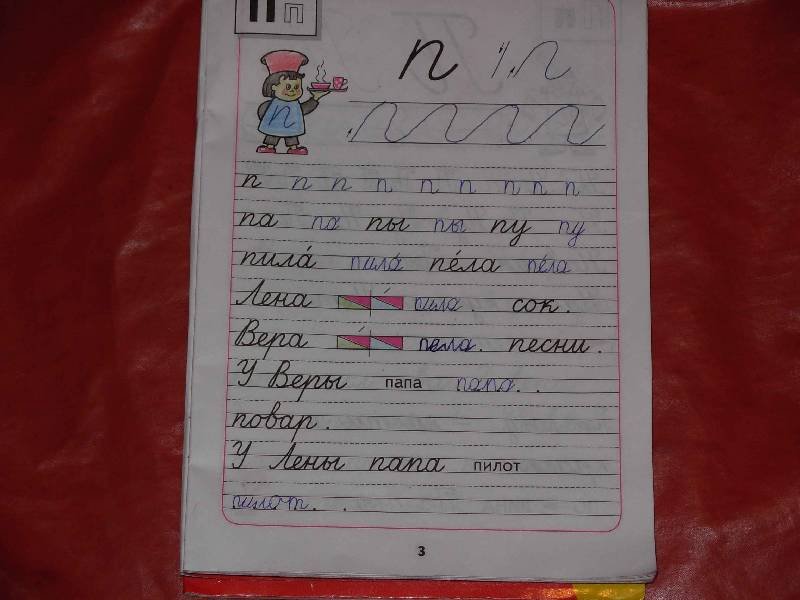 П п
п п
п
п п п п п п п п п
па па пы пы пу пу
пила́ пила́ пе́ла пе́ла
Лена пила. сок.
Вера пела. песни.
У Веры папа папа. .
повар.
У Лены папа пилот
пилот. .
3